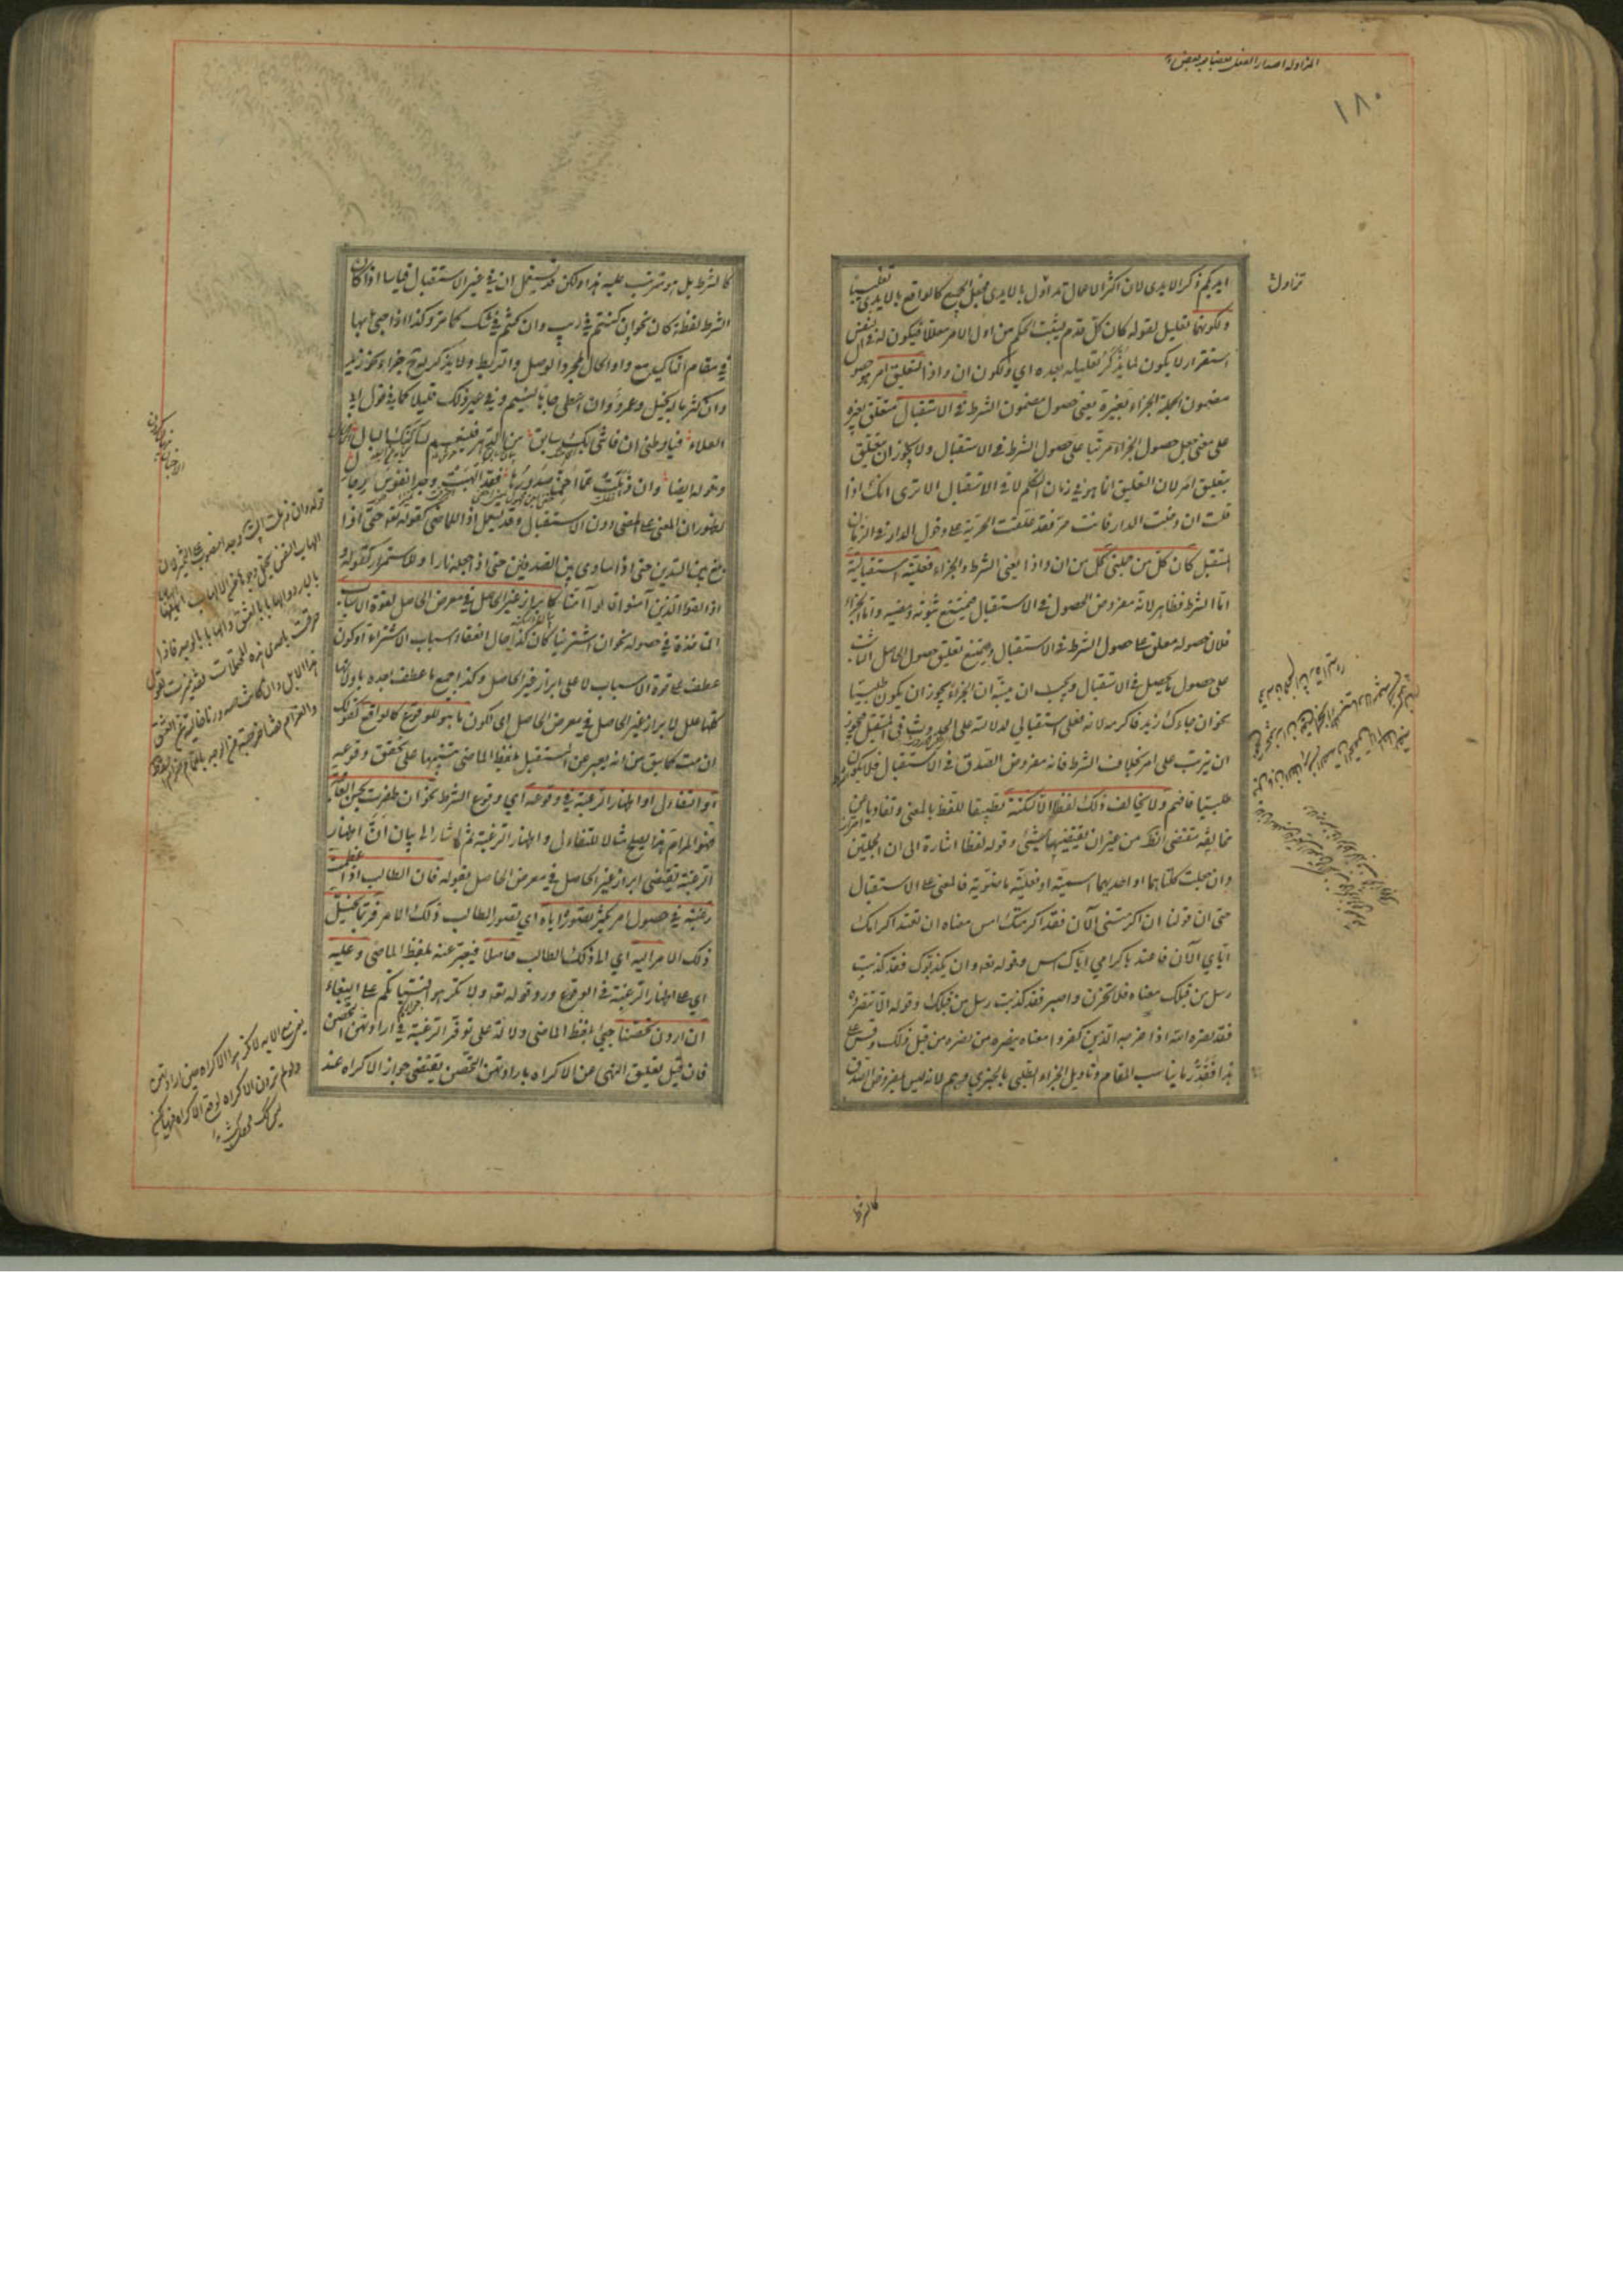 المزاولة اصدار الفعل بعضا بعد بعض
١٨٠
تزاول
ايديكم ذكر الايدى لان اكثر الاعمال تزاول بالايدى فجعل الجميع كالواقع بالايدى تغليبا
ولكونهما تعليل لقوله كان كل قدم ليثبت الحكم من اول الامر معللا فيكون له فى النفس
استقرار لا يكون لما يذكر تعليله بعده اي ولكون ان واذا لتعليق امر هو حصول
مضمون الجملة الجزاء بغيره يعنى حصول مضمون الشرط فى الاستقبال متعلق بغيره
على معنى جعل حصول الجزاء مرتبا على حصول الشرط فى الاستقبال ولا يجوز ان يتعلق
بتعليق امر لان التعليق انما هو فى زمان التكلم لا فى الاستقبال الا ترى انك اذا
قلت ان دخلت الدار فانت حر فقد علقت الحرية على دخول الدار فى الزمان
المستقبل كان كل من جملتى كل من ان واذا يعنى الشرط والجزاء فعلية استقبالية
اما الشرط فظاهر لانه مفروض الحصول فى الاستقبال فيمتنع ثبوته ومضيه واما الجزاء
فلان حصوله معلق على حصول الشرط فى الاستقبال ويمتنع تعليق حصول الحاصل الثابت
على حصول ما يحصل فى الاستقبال ويجب ان ينبه ان الجزاء يجوز ان يكون طلبيا
نحو ان جاءك زيد فاكرمه لانه فعلى استقبالي لدلالته على الحدوث فى المستقبل فيجوز
ان يترتب على امر بخلاف الشرط فانه مفروض الصدق فى الاستقبال فلا يكون
طلبيا فافهم ولا يخالف ذلك لفظا الا لنكتة تطبيقا للفظ بالمعنى وتفاديا عن
مخالفة مقتضى الظ من غير ان يقتضيها شئ وقوله لفظا اشارة الى ان الجملتين
وان جعلت كلتاهما او احديهما اسمية او فعلية ماضوية فالمعنى على الاستقبال
حتى ان قولنا ان اكرمتنى الآن فقد اكرمتك امس معناه ان تعتد اكرامك
اياي الآن فاعتد باكرامي اياك امس وقوله تعه وان يكذبوك فقد كذبت
رسل من قبلك معناه فلا تحزن واصبر فقد كذبت رسل من قبلك وقوله الا تنصروه
فقد نصره الله اذا خرجه الذين كفروا معناه ينصره من نصره من قبل ذلك وقس على
هذا فقدر ما يناسب المقام وتاويل الجزاء الطلبي بالخبري وهم لانه ليس بمفروض الصدق
كالشرط
كالشرط بل هو مترتب عليه هذا ولكن قد يستعمل ان فى غير الاستقبال قياسا اذا كان
الشرط لفظة كان نحو ان كنتم فى ريب وان كنتم فى شك كما مر وكذا اذا جئ بها
فى مقام التاكيد مع واو الحال لمجرد الوصل والربط ولا يذكر له ح جزاء نحو زيد
وان كثر ماله بخيل وعمرو وان اعطى جاها لئيم وفى غير ذلك قليلا كما فى قول ابى
العلاء فيا وطنى ان فاتنى بك سابق من الدهر فلينعم لساكنك البال
وقوله ايضا وان ذهلت عما اجن صدورها فقد الهبت وجدا نفوس رجال
لظهور ان المعنى على المضى دون الاستقبال وقد يستعمل اذا للماضى كقوله تعه حتى اذا
بلغ بين السدين حتى اذا ساوى بين الصدفين حتى اذا جعله نارا وللاستمرار كقوله
اذا لقوا الذين آمنوا قالوا آمنا كابراز غير الحاصل فى معرض الحاصل لقوة الاسباب
المتاخذة فى حصوله نحو ان اشترينا كان كذا حال انعقاد اسباب الاشتراء او كون
عطف على قوة الاسباب لا على ابراز غير الحاصل وكذا جميع ما عطف بعده باو لانها
كلها علل لابراز غير الحاصل فى معرض الحاصل اى لكون ما هو للوقوع كالواقع كقولك
ان مت كما سبق من انه يعبر عن المستقبل بلفظ الماضى تنبيها على تحقق وقوعه
او التفاءل او اظهار الرغبة فى وقوعه اي وقوع الشرط نحو ان ظفرت بحسن العاقبة
فهو المرام هذا يصلح مثالا للتفاءل واظهار الرغبة ثم اشار الى بيان ان اظهار
الرغبة يقتضى ابراز غير الحاصل فى معرض الحاصل بقوله فان الطالب اذا عظمت
رغبته فى حصول امر يكثر تصوره اياه اي تصور الطالب ذلك الامر فربما يخيل
ذلك الامر اليه اي الى ذلك الطالب حاصلا فيعبر عنه بلفظ الماضى وعليه
اي على اظهار الرغبة فى الوقوع ورد قوله تعه ولا تكرهوا فتياتكم على البغاء
ان اردن تحصنا جئ بلفظ الماضى دلالة على توفر الرغبة فى ارادتهن التحصن
فان قيل تعليق النهى عن الاكراه بارادتهن التحصن يقتضى جواز الاكراه عند